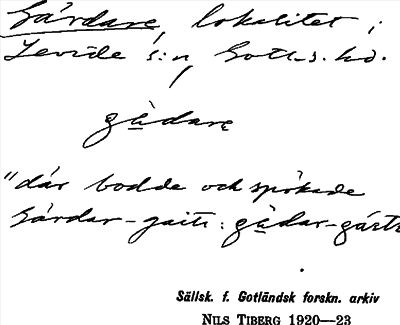 Gårdare, lokalitet i
Levide s:n, Gotl-s. hd.
gùdarę
"där bodde och spökade
Gårdar-gaitr: gùdar-gástr
Sällsk. f. Gotländsk forskn. arkiv
NILS TIBERG 1920—23